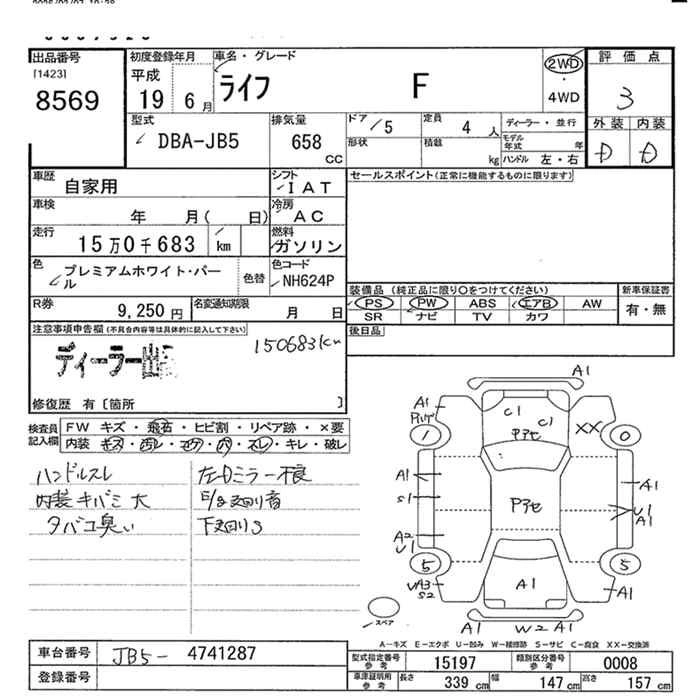 出品番号
[1423]
8569
初度登録年月
平成
19 6月
車名・グレード
ライフ F
2WD
・
4WD
評価点
3
外装 内装
D D
型式
DBA-JB5
排気量
658
CC
ドア /5
定員 4 人
形状
積載 kg
ディーラー・並行
モデル年式 年
ハンドル 左・右
車歴 自家用
シフト IAT
車検 年 月( 日)
冷房 AC
走行 15万0千683 km
燃料 ガソリン
色 プレミアムホワイト・パール
色替
色コード NH624P
R券 9,250円
名変通知期限 月 日
セールスポイント(正常に機能するものに限ります)
装備品 (純正品に限り○をつけてください)
PS PW ABS エアB AW
SR ナビ TV カワ
新車保証書
有・無
後日品
注意事項申告欄(不具合内容等は具体的に記入して下さい)
ディーラー出
150683km
修復歴 有〔箇所 〕
検査員記入欄
FW キズ・飛石・ヒビ割・リペア跡・×要
内装 キズ・汚レ・コゲ・穴・スレ・キレ・破レ
ハンドルスレ
内装キバミ大
タバコ臭い
左Dミラー不良
下廻りS
A1
A1
C1 C1
Pアセ
XX
1 0
A1
S1
A2
U1
Pアセ
A1
U1
A1
5 5
UA3
S2
A1
A1
A1 W2 A1
スペア
A—キズ E—エクボ U—凹み W—補修跡 S—サビ C—腐食 XX—交換済
車台番号 JB5- 4741287
登録番号
型式指定番号 参考 15197
類別区分番号 参考 0008
車庫証明用 参考 長さ 339 cm 幅 147 cm 高さ 157 cm